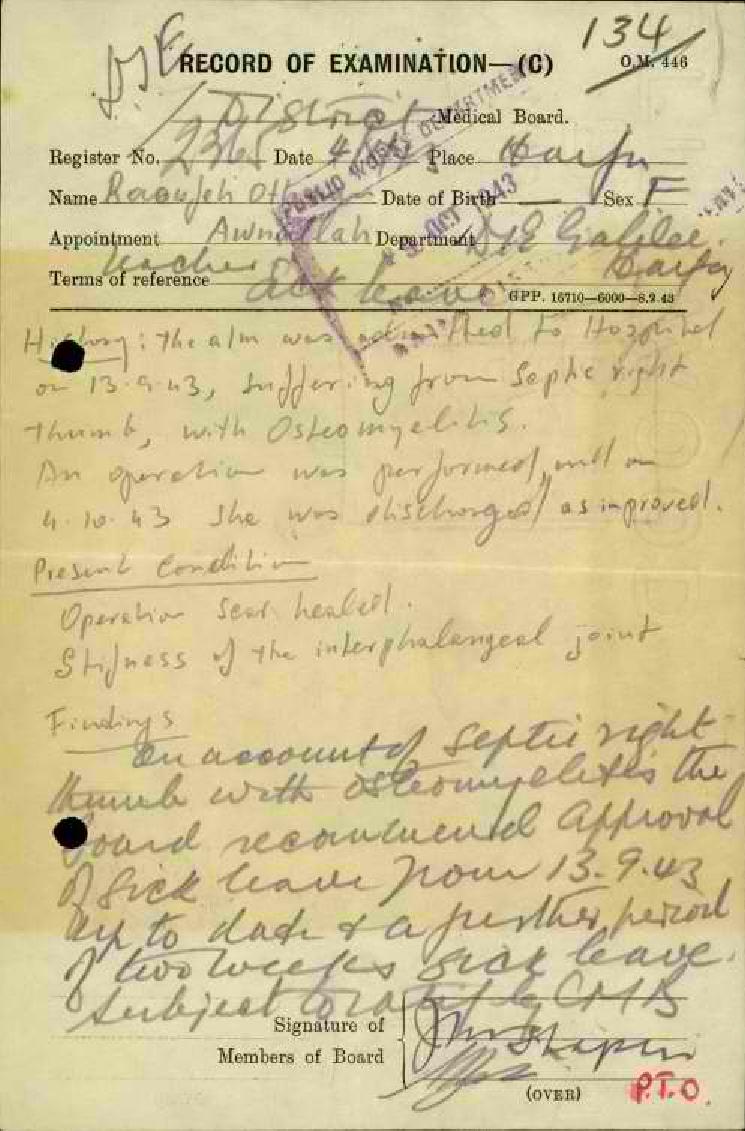 134
RECORD OF EXAMINATION—(C) O.M. 446
District Medical Board.
Register No. 2365 Date Place Haifa
Name Raoufeh Date of Birth — Sex F
Appointment Awnallah Department D/E Galilee.
teacher Haifa
Terms of reference Sick leave GPP. 16710—6000—8.9.43
PUBLIC WORKS DEPARTMENT
OCT 1943
History: The a/m was admitted to Hospital
on 13.9.43, suffering from Septic right
thumb, with Osteomyelitis.
An operation was performed, and on
4.10.43 she was discharged as improved.
Present Condition
Operation scar healed.
Stifness of the interphalangeal joint
Findings
On account of septic right
thumb with osteomyelitis the
Board recommend approval
of sick leave from 13.9.43
up to date & a further period
of two weeks sick leave.
subject to CMB
Signature of
Members of Board
(OVER) P.T.O.